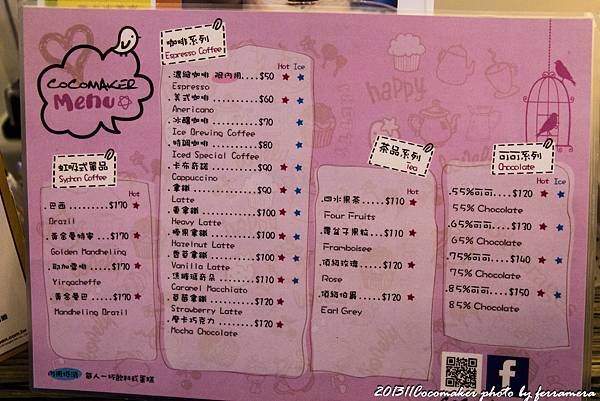 COCOMAKER
Menu
咖啡系列
Espresso Coffee
Hot Ice
.濃縮咖啡 限內用....$50
Espresso
.美式咖啡..........$60
Americano
.冰釀咖啡..........$70
Ice Brewing Coffee
.特調咖啡..........$80
Iced Special Coffee
.卡布奇諾..........$90
Cappuccino
.拿鐵..............$90
Latte
.重拿鐵...........$100
Heavy Latte
.榛果拿鐵.........$100
Hazelnut Latte
.香草拿鐵.........$100
Vanilla Latte
.焦糖瑪奇朵.......$120
Caramel Macchiato
.草莓拿鐵.........$120
Strawberry Latte
.摩卡巧克力.......$120
Mocha Chocolate
虹吸式單品
Syphon Coffee
Hot
.巴西.........$170
Brazil
.黃金曼特寧...$170
Golden Mandheling
.耶加雪啡.....$170
Yirgacheffe
.黃金曼巴.....$170
Mandheling Brazil
茶品系列
Tea
Hot
.四水果茶....$110
Four Fruits
.覆盆子果粒...$110
Framboisee
.頂級玫瑰....$120
Rose
.頂級伯爵....$120
Earl Grey
可可系列
Chocolate
Hot Ice
.55%可可.....$120
55% Chocolate
.65%可可.....$130
65% Chocolate
.75%可可.....$140
75% Chocolate
.85%可可.....$150
85% Chocolate
happy
內用低消 每人一杯飲料或蛋糕
f
201311Cocomaker photo by ferramera